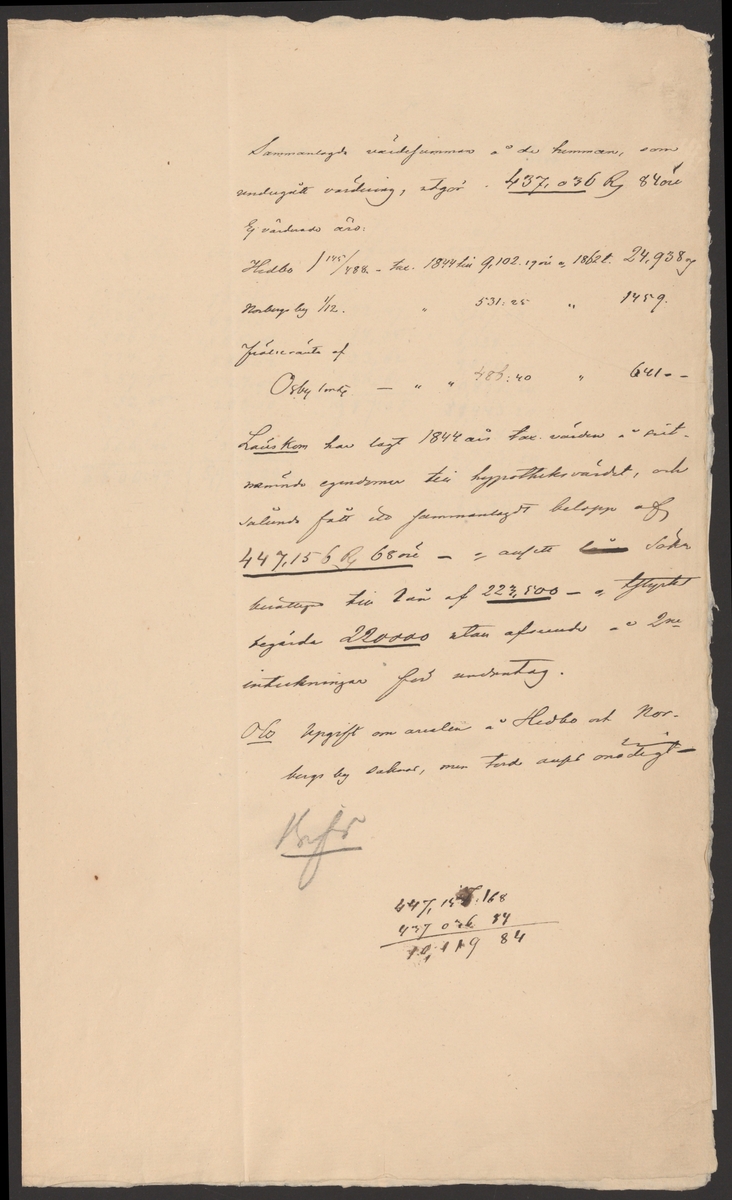 Sammanlagda värdesumman å de hemman, som
undergått värdering, utgör . 437,036 R 84 öre
Ej värderade äro:
Hedbo 1 145/488. – tax. 1844 till 9,102. 19 öre o. 1862 t. 24,938
Norbergs by 1/12. " 531: 25 " 1459.
Frälseränta af
Osby — " " 486: 40 " 641 – –
Länskom har lagt 1844 års tax. värden å sist-
nämnda egendomar till hypotheksvärdet, och
sålunda fått ett sammanlagdt belopp af
447,156 R 68 öre – o ansett Sökn
berättigad till lån af 223,500 – o tillstyrkt
begärda 220000 utan afseende å 2ne
inteckningar undantag.
Obs Uppgift om arealen å Hedbo och Nor-
bergs by saknas, men torde anses onödigt –
447,156. 68
437 036 84
10,119 84